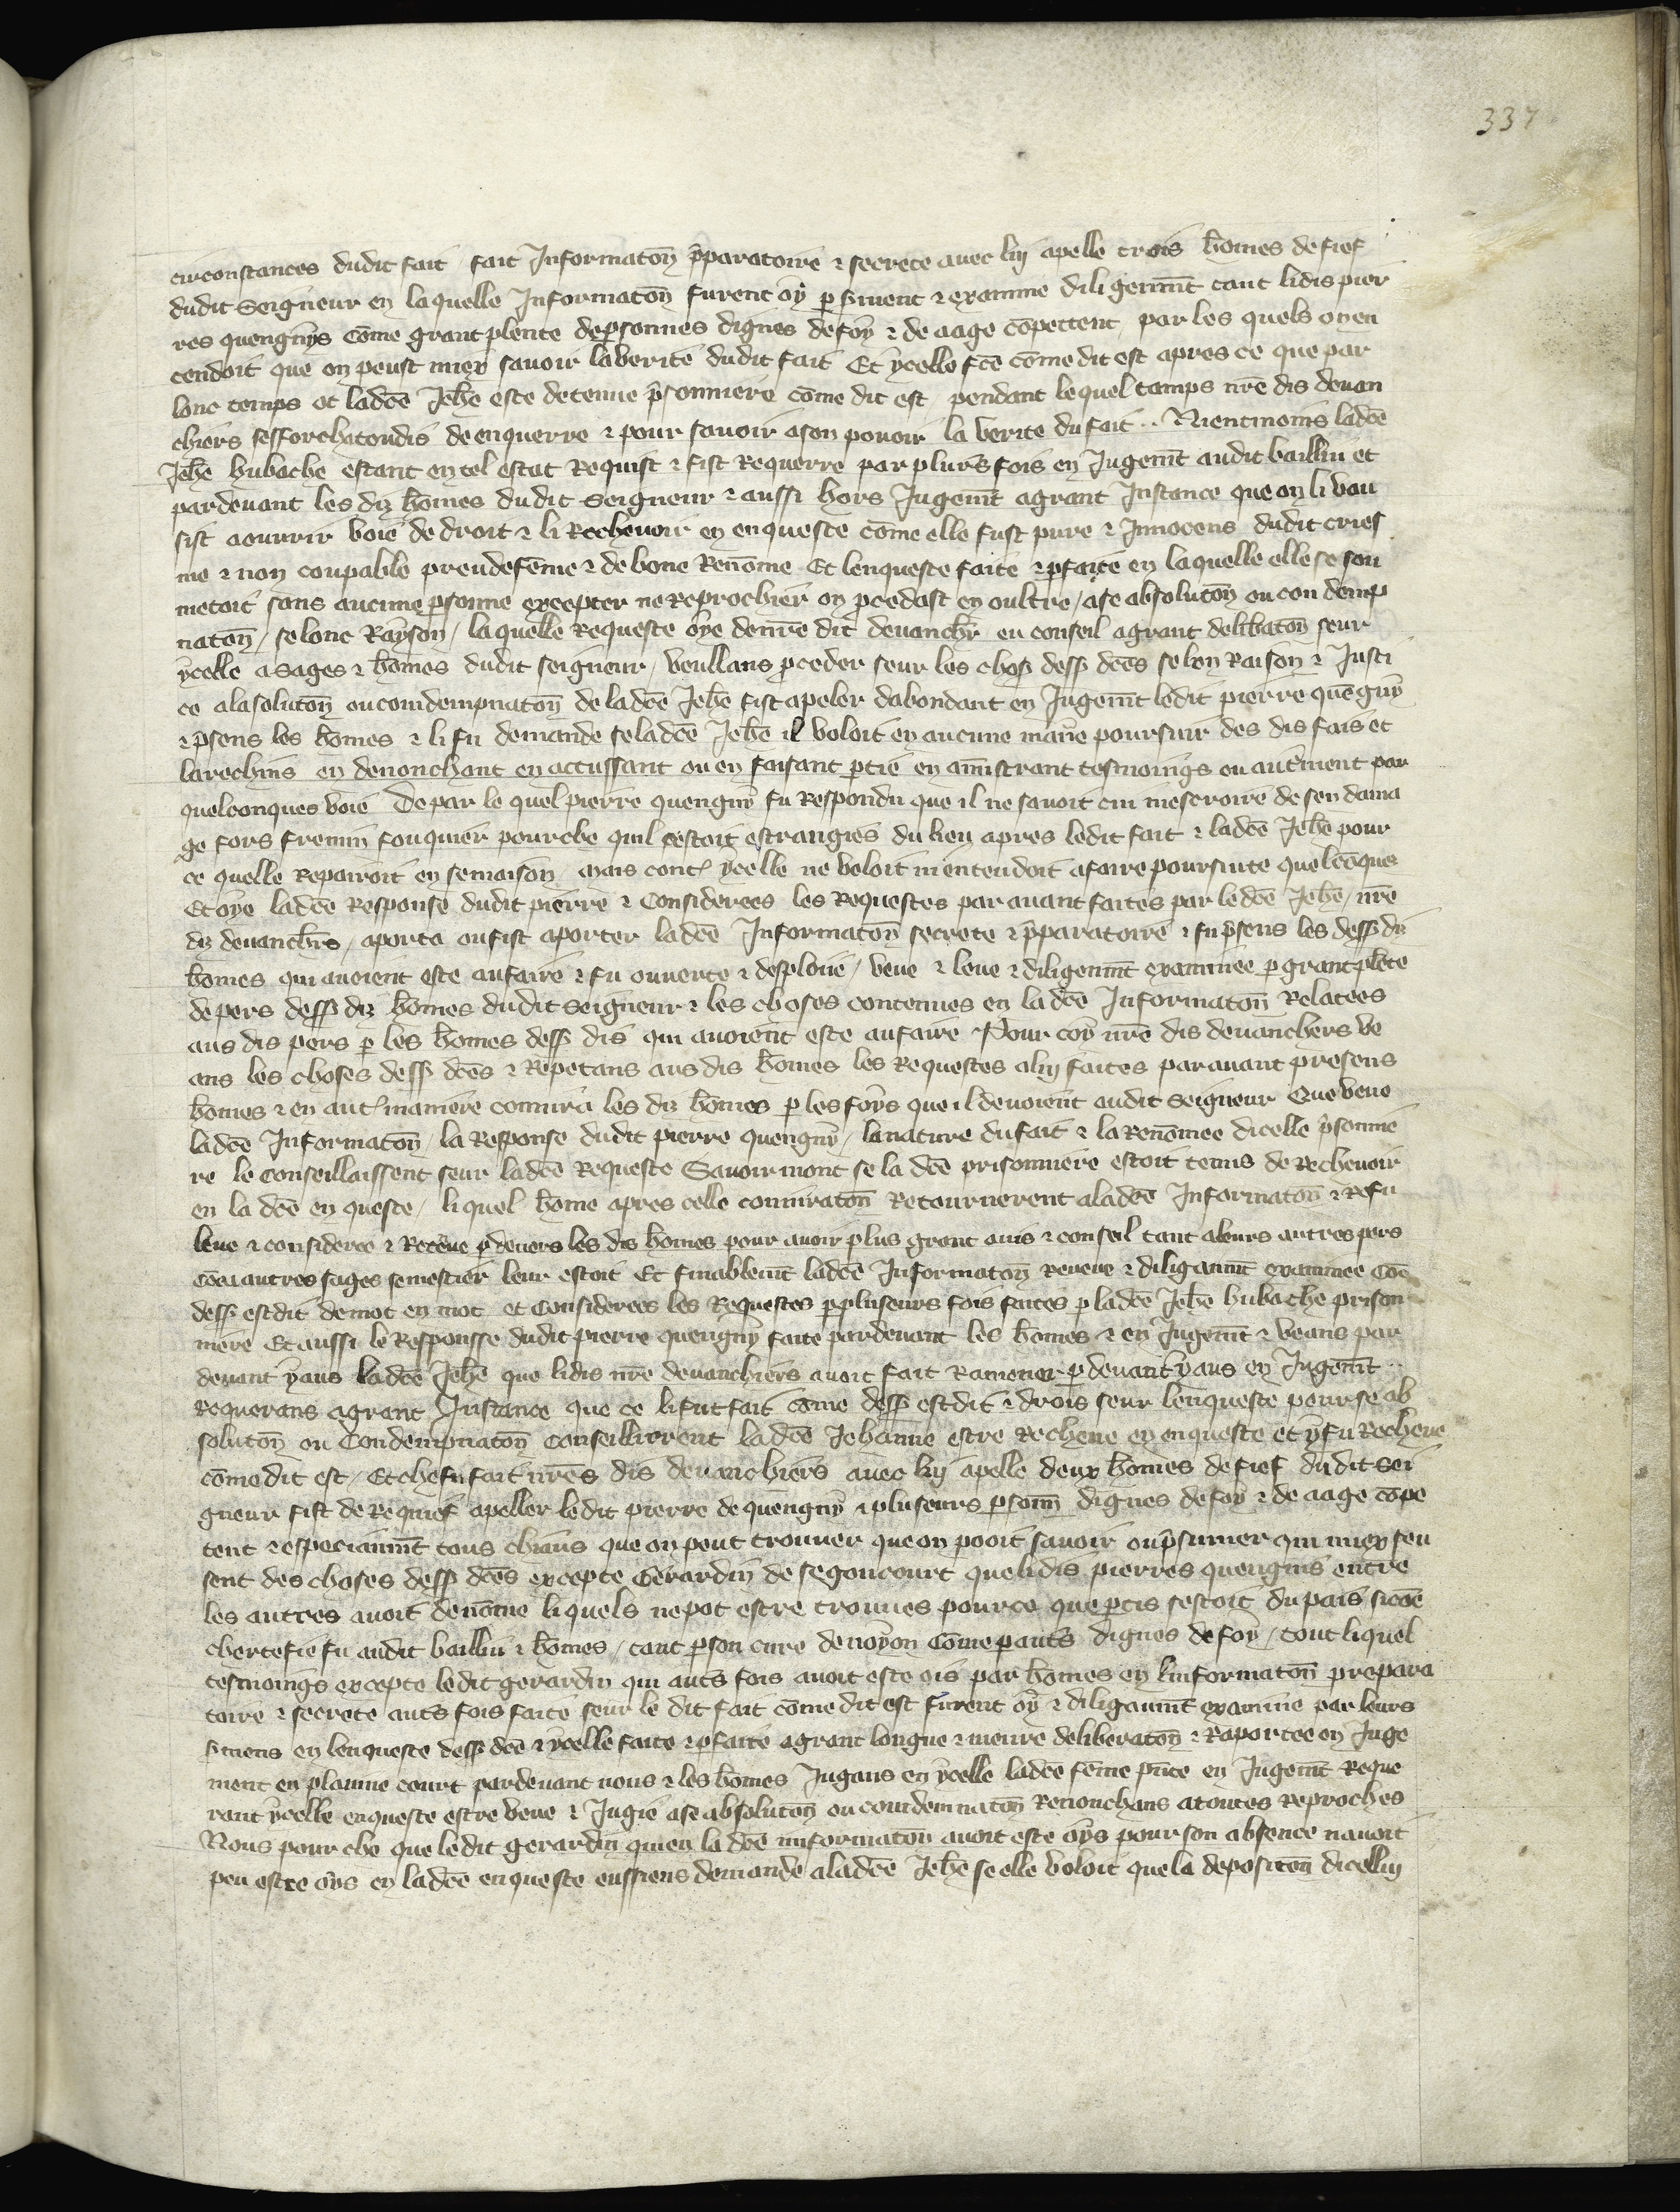 337
circonstances dudit fait fait Informatōn p̄paratoire ⁊ secrete auec luy apelle trois hōmes de fief
dudit Seigneur en laquelle Informatōn furent oy p̱ s̄ment ⁊ examine diligenm̄t tant lidis pier
res quengnys cōme grant plente de psonnes dignes de foy ⁊ de aage cōpettent par les quels on en
tendoit que on peust miex sauoir la verite dudit fait Et ycelle fc̄e cōme dit est apres ce que par
lonc temps ot ladc̄e Jehē este detenue p̄sonniere cōme dit est pendant lequel tamps nr̄e dis deuan
chiers sefforcha tondis de enquerre ⁊ pour sauoir a son pouoir la verite du fait ·· Nientmoins ladc̄e
Jehē hubache estant en tel estat Requist ⁊ fist Requerre par plurs̄ fois en Jugem̄t audit bailliu et
pardeuant les diz hōmes dudit Seigneur ⁊ aussi hors Jugem̄t a grant Instance que on li vau
sist aouurir voie de droit ⁊ li Recheuoir en enqueste cōme elle fust pure ⁊ Innocens dudit cries
me ⁊ non coupable preudefēme ⁊ de bone Renōme Et lenqueste faite ⁊ pfaite en laquelle elle se sou
metoit sans aucune psonne excepter ne reprochier on pcedast en oultre / a se absolutōn ou con demp
natōn / selonc Rayson / laquelle Requeste oye de nr̄e dit deuanchr̄ eu conseil a grant delib̄atōn seur
ycelle a sages ⁊ hōmes dudit seigneur / veullans pceder seur les chos dess dc̄es selon Raison ⁊ Justi
ce a lasolutōn ou comdempnatōn de ladc̄e Jehē fist apeler dabondant en Jugem̄t ledit pierre quēgny
⁊ p̄sens les hōmes ⁊ li fu demande se ladc̄e Jehē il voloit en aucune man̄e poursuir des dis fais et
larechins en denonchant en accussant ou en faisant ptie en amīstrant tesmoings ou aut̄ment par
quelconques voie De par le quel pierre quengny fu Respondu que il ne sauoit cui mescroire de sen dama
ge fors fremin fouquier pourche quil sestoit estrangies du lieu apres ledit fait ⁊ ladc̄e Jehē pour
ce quelle Repairoit en semaison mais cont̄ ycelle ne voloit ni entendoit a faire poursuite quelcōques
Et oye ladc̄e Response dudit pierre ⁊ Considerees les Requestes par auant faites par le dc̄e Jehē / nr̄e
diz deuanchr̄s / aporta ou fist aporter ladc̄e Informatōn secrete ⁊ p̄paratoire ⁊ fu p̄sens les dess diz
hōmes qui auoient este au faire ⁊ fu ouuerte ⁊ desploiie / veue ⁊ leue ⁊ diligenm̄t examinee p̱ grant plēte
de pers dess diz hōmes dudit Seigneur ⁊ les choses contenues en la dc̄e Informatōn Relatees
aus dis pers p̱ les hōmes dess dis qui auoient este au faire Pour coy nr̄e dis deuanchers ve
ans les choses dess dc̄es ⁊ Repetans aus dis hōmes les Requestes a luy faites par auant presens
hōmes ⁊ en aut̄ maniere coniura les diz hōmes p̱ les foys que il deuoient audit Seigneur Que veue
ladc̄e Informatōn / la Response dudit pierre quengny / la nature du fait ⁊ la Renōmee dicelle p̄sonnie
re le conseillaissent seur ladc̄e Requeste Sauoir mont se la dc̄e prisonniere estoit tenus de Recheuoir
en la dc̄e en queste / li quel hōme apres celle coniuratōn Retournerent a ladc̄e Informatōn ⁊ Refu
leue ⁊ consideree ⁊ Receue p̱deuers les dis hōmes pour auoir plus grant auis ⁊ conseil tant a leurs autres pers
cōe a autres sages se mestier leur estoit Et finablem̄t ladc̄e Informatōn Reueue ⁊ diliganm̄t examinee Cōe
dess est dit de mot en mot et Considerees les Requestes p̱ pluseurs fois faites p̱ ladc̄e Jehē hubache prison
niere Et aussi le Responsse dudit pierre quengny faite pardeuant les hōmes ⁊ en Jugem̄t ⁊ veans par
deuant yaus ladc̄e Jehē que lidis nr̄e deuanchiers auoit fait Ramener p̱deuant yaus en Jugem̄t ··
requerans a grant Instance que ce li fut fait cōme dess est dit ⁊ drois seur lenqueste pour se ab
solutōn ou Condempnatōn conseillierent ladc̄e Jehanne estre recheue en enqueste et y fu Recheue
cōme dit est / Et che fu fait nr̄es dis deuanchiers auec luy apelle deux hōmes de fief dudit sei
gneur fist de Requief apeller ledit pierre de quengny ⁊ pluseurs psonn̄ dignes de foy ⁊ de aage cōpe
tent ⁊ especianm̄t tous chiaus que on peut trouuer que on pooit sauoir ou p̄sumer qui miex seu
sent des choses dess dc̄es excepte Gerardin de segoncourt que lidis pierres quengnis entre
les autres auoit denōme liquels ne pot estre trouues pour ce que ptis sestoit du pais sicōe
chertefie fu audit bailliu ⁊ hōmes / tant p̱ son cure de noyon Cōme p̱ aut̄s dignes de foy / tout liquel
tesmoings excepte ledit gerardin qui aut̄s fois auoit este ois par hōmes en linformatōn prepara
toire ⁊ secrete aut̄s fois faite seur le dit fait cōme dit est furent oy ⁊ diliganm̄t examine par leurs
s̄mens en lenqueste dess dc̄e ⁊ ycelle faite ⁊ pfaite a grant longue ⁊ meure deliberatōn ⁊ Raportee en Juge
ment en plainne court pardeuant nous ⁊ les hōmes Jugans en ycelle ladc̄e fēme pn̄te en Jugem̄t Reque
rant ycelle enqueste estre veue ⁊ Jugie a se absolutōn ou condemnatōn Renonchans a toutes reproches
Nous pour che que ledit gerardin qui en la dc̄e imformatōn auoit este oys pour son absence nauoit
peu estre oys en ladc̄e enqueste eussiens demande a ladc̄e Jehē se elle voloit que la depositōn dicelluy